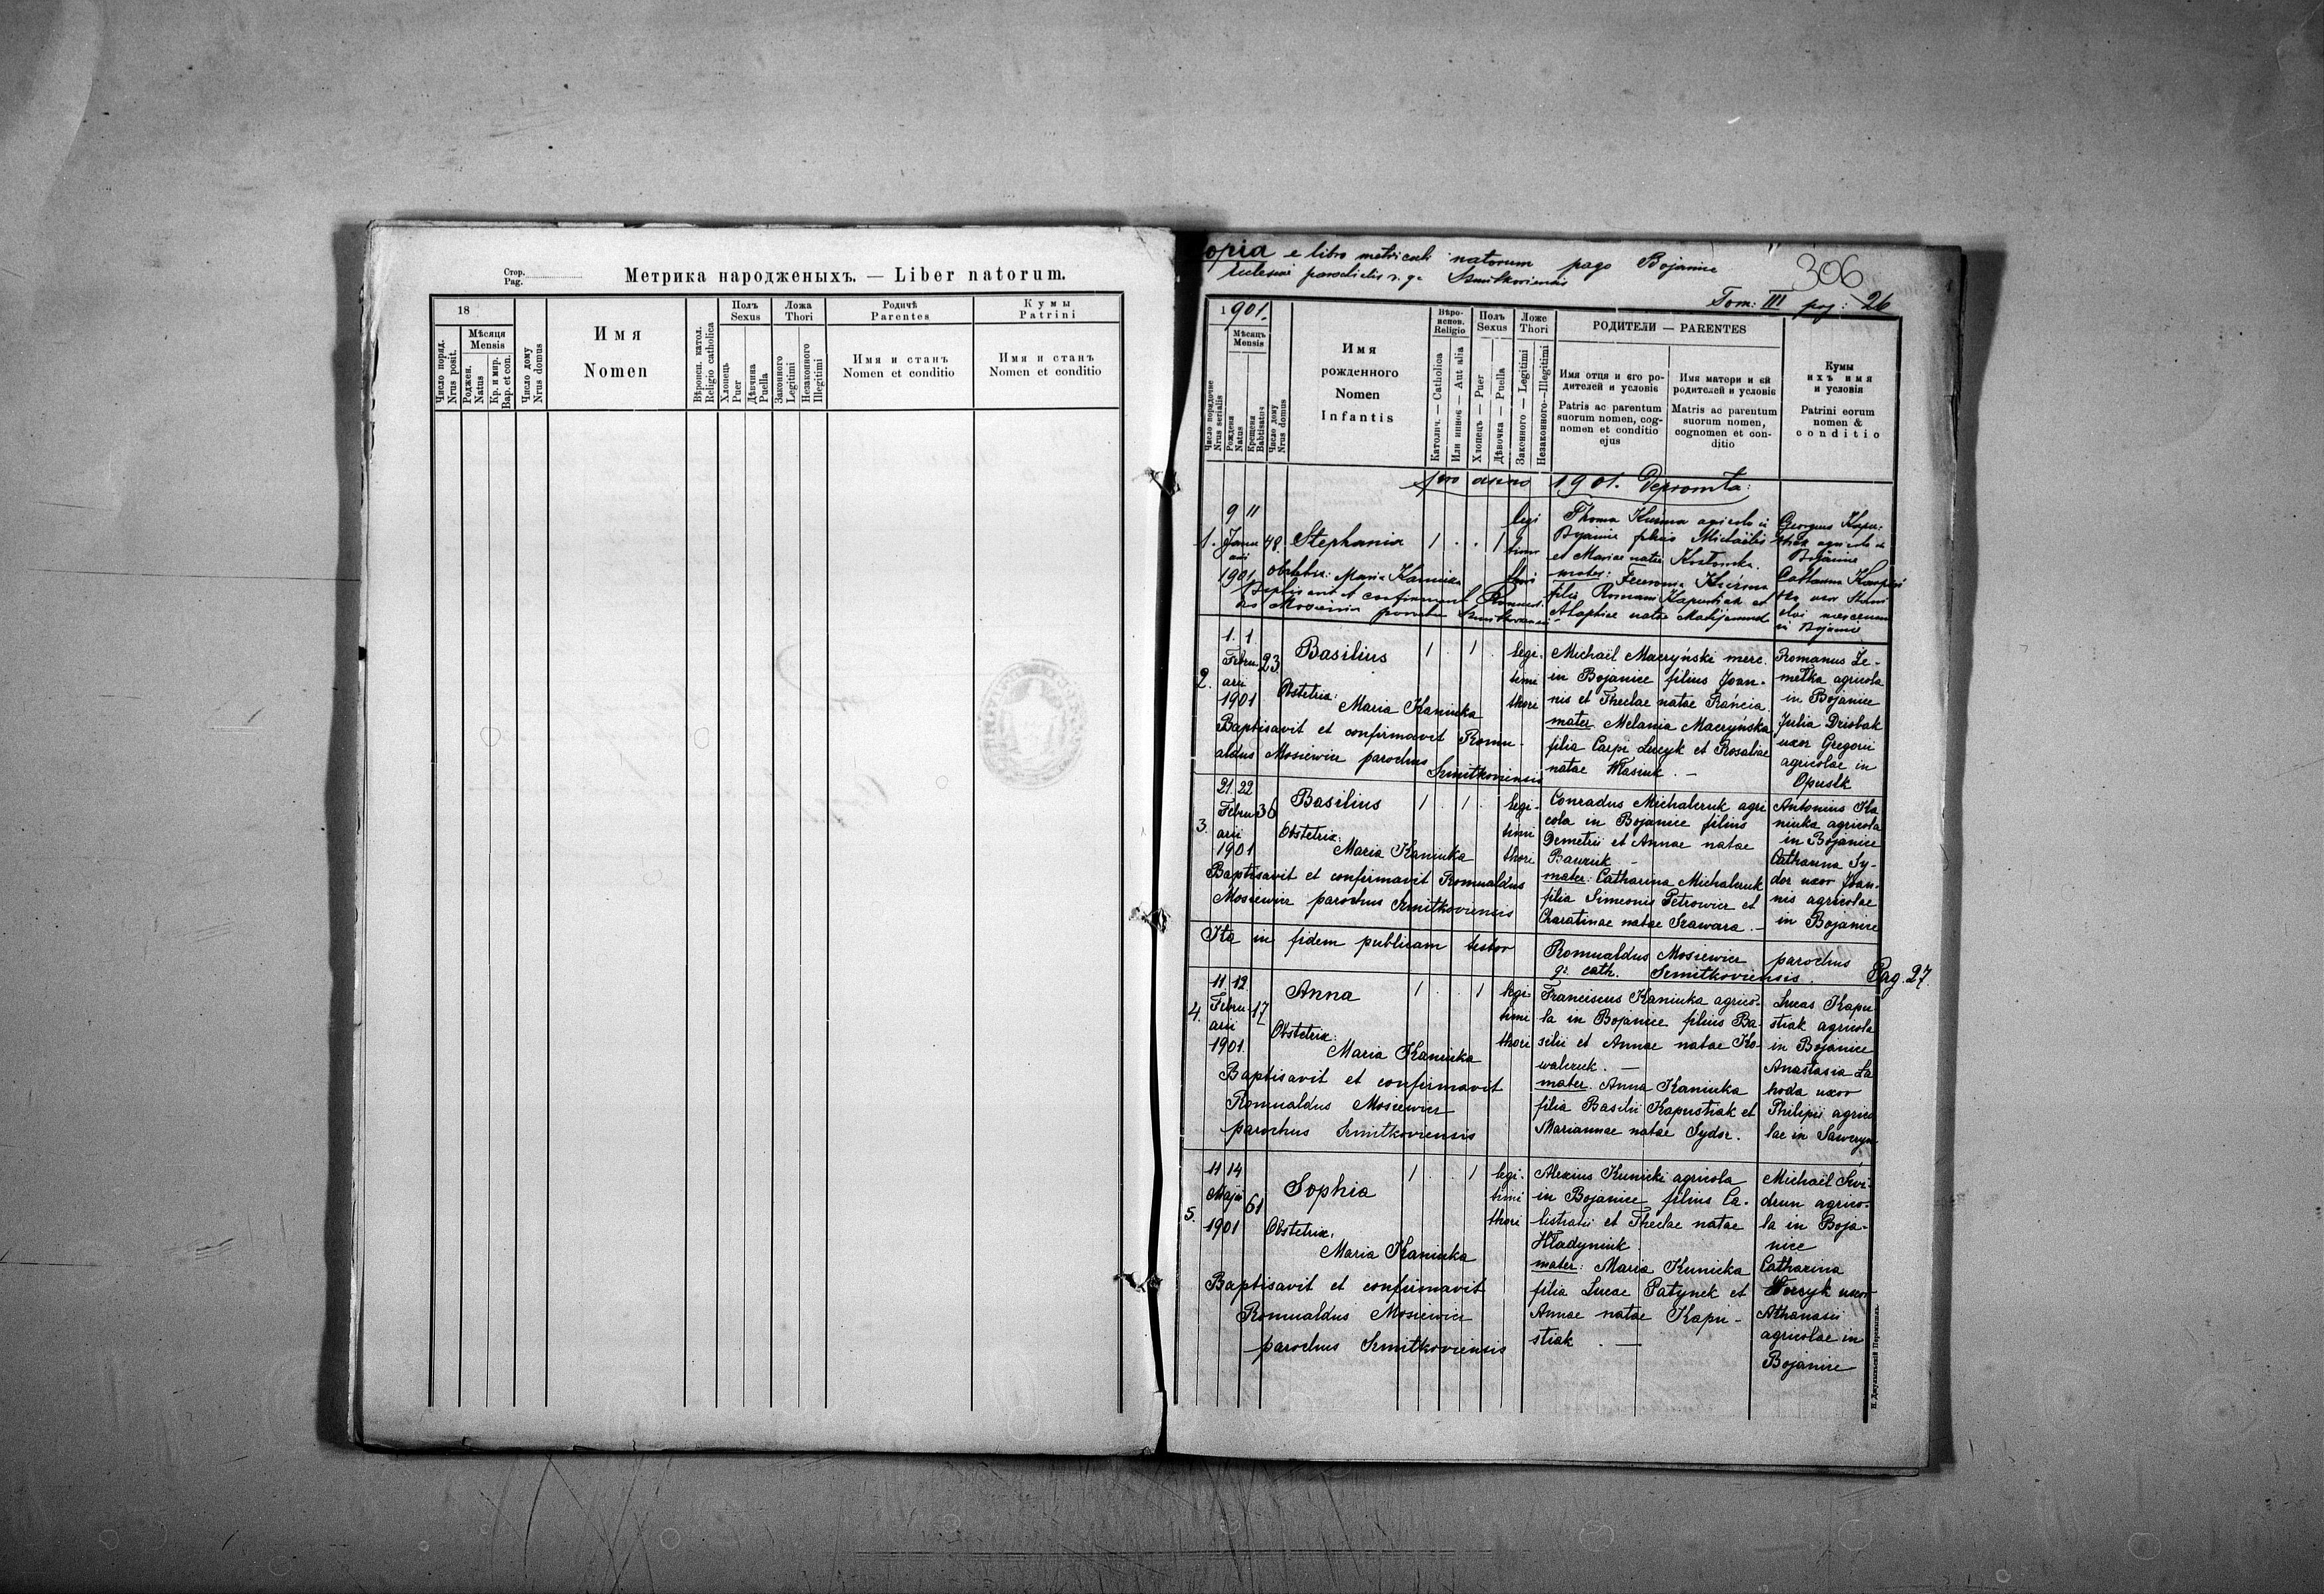 Стор.
Pag.
Метрика народженыхъ. — Liber natorum.
18
Мѣсяця
Mensis
Число поряд.
Nrus posit.
Роджен.
Natus
Кр. и мир.
Bap. et con.
Число дому
Nrus domus
Имя
Nomen
Вѣроисп. катол.
Religio catholica
Полъ
Sexus
Хлопець
Puer
Дѣвчина
Puella
Ложа
Thori
Законного
Legitimi
Незаконного
Illegitimi
Родичѣ
Parentes
Имя и станъ
Nomen et conditio
Кумы
Patrini
Имя и станъ
Nomen et conditio
opia e libro metricali natorum pago Bojanice
306
Ecclesiae parochialis r. g. Szmitkoviensis
Tom: III pag: 26
1901.
Мѣсяць
Mensis
Число порядкове
Nrus serialis
Рождена
Natus
Крещена
Babtisatus
Число дому
Nrus domus
Имя
рожденного
Nomen
Infantis
Вѣро-
испов.
Religio
Католич. — Catholica
Или инное — Aut alia
Полъ
Sexus
Хлопець — Puer
Дѣвочка — Puella
Ложе
Thori
Законного — Legitimi
Незаконного — Illegitimi
РОДИТЕЛИ — PARENTES
Имя отця и его ро-
дителей и условіе
Patris ac parentum
suorum nomen, cog-
nomen et conditio
ejus
Имя матери и ей
родителей и условіе
Matris ac parentum
suorum nomen,
cognomen et con-
ditio
Кумы
ихъ имя
и условія
Patrini eorum
nomen &
conditio
pro anno 1901. Depromta:
1.
9 11
Janu
arii
1901
48.
Stephania
1 . . 1
legi
timi
thori
Obstetrix: Maria Kaniuka
Baptisavit et confirmavit Romual
dus Mosiewicz parochus Szmitkoviensis
Thoma agricola in
Bojanice filius Michaëlis
et Mariae natae
mater:
filia Romani Kapustiak et
natae
Georgius Kapu-
stiak agricola in
Bojanice
in Bojanice
2.
1. 1.
Febru
arii
1901
23
Basilius
1 . 1 .
legi.
timi
thori
Obstetrix:
Maria Kaniuka
Baptisavit et confirmavit Romu-
aldus Mosiewicz parochus
Szmitkoviensis
Michaël Maeryński merc.
in Bojanice filius Joan-
nis et Theclae natae Rańcia.
mater Melania Maeryńska
filia Carpi Lucyk et Rosaliae
natae Własiuk. —
Romanus Le-
metka agricola
in Bojanice
Julia Driobak
uxor Gregorii
agricolae in
Opulsk
3.
21. 22
Febru
arii
1901
36
Basilius
1 . 1 .
legi-
timi
thori
Obstetrix:
Maria Kaniuka
Baptisavit et confirmavit Romualdus
Mosiewicz parochus Szmitkoviensis
Conradus Michalczuk agri
cola in Bojanice filius
Demetrii et Annae natae
mater: Catharina Michalczuk
filia Simeonis Petrowicz et
Charatinae natae Szawara. —
Antonius Ka
niuka agricola
in Bojanice
Catharina Sy-
dor uxor Joan-
nis agricolae
in Bojanice
Ita in fidem publicam testor Romualdus Mosiewicz parochus
gr. cath. Szmitkoviensis.
Pag. 27
4.
11 12
Febru
arii
1901.
17
Anna
1 . . 1
legi
timi
thori
Obstetrix:
Maria Kaniuka
Baptisavit et confirmavit
Romualdus Mosiewicz
parochus Szmitkoviensis
Franciscus Kaniuka agrico-
la in Bojanice filius Ba-
silii et Annae natae Ko-
walczuk. —
mater. Anna Kaniuka
filia Basilii Kapustiak et
Mariannae natae Sydor.
Lucas Kapu
stiak agricola
in Bojanice
Anastasia La
hoda uxor
Philipii agrico
lae in Sawczyn
5.
11 14
Maji
1901
61
Sophia
1 . . 1
legi-
timi
thori
Obstetrix.
Maria Kaniuka
Baptisavit et confirmavit
Romualdus Mosiewicz
parochus Szmitkoviensis
Alexius Kunicki agricola
in Bojanice filius Ca-
listratii et Theclae natae
Hładyniuk
mater: Maria Kunicka
filia Lucae Patynek et
Annae natae Kapu-
stiak . —
Michaël Swi-
drun agrico-
la in Boja-
nice
Catharina
Worsyk uxor
Athanasii
agricolae in
Bojanice